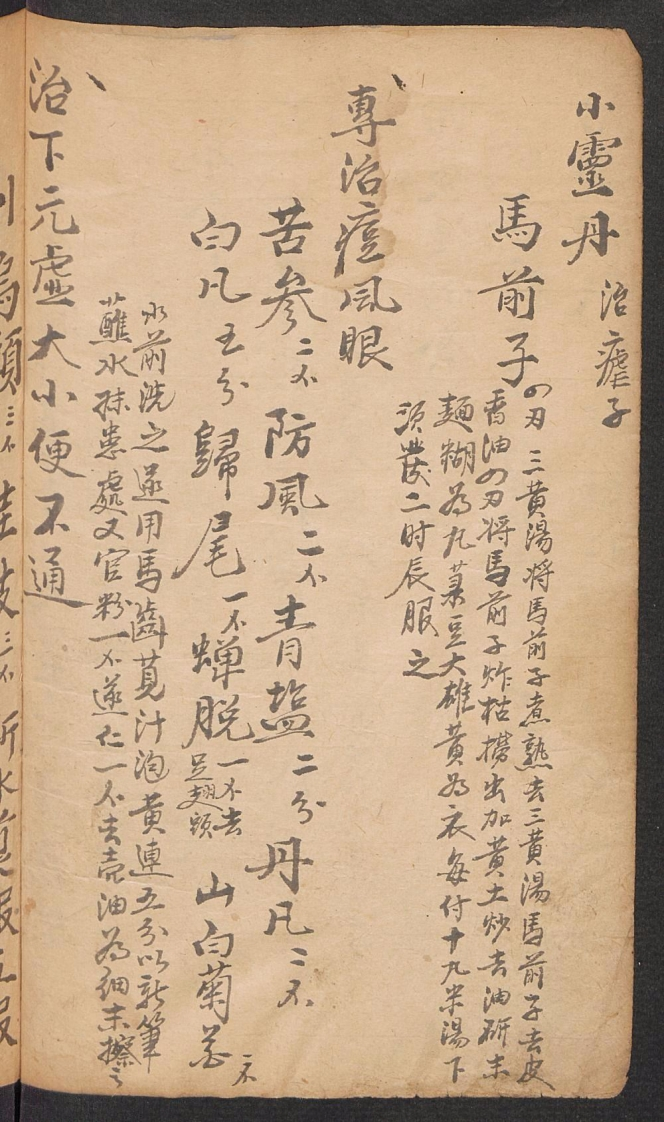 小靈丹 治瘧子
馬前子四刃 三黃湯將馬前子煮熟去三黃湯馬前子去皮
香油四刃將馬前子炸枯撈出加黃土炒去油研末
麵糊為丸菉豆大雄黃為衣每付十九米湯下
須發二时辰服之
專治痘風眼
苦參二不 防風二不 青塩二分 丹凡二不
白凡五分 歸尾一不 蟬脫一不去足翅頭 山白菊花二不
水煎洗之遂用馬齒莧汁泡黃連五分以新筆
蘸水抹患處又官粉一不蓬仁一不去壳油為細末擦之
治下元虛大小便不通
川烏頭三不 桂枝三不